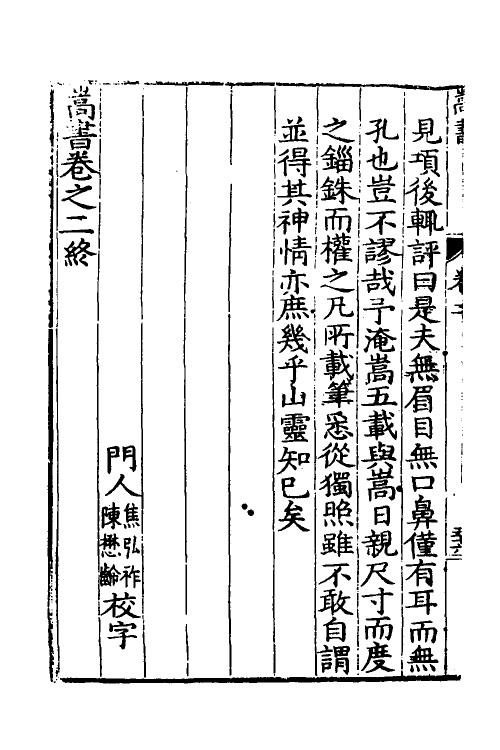 見項後輒評曰是夫無眉目無口鼻僅有耳而無
孔也豈不謬哉予淹嵩五載與嵩日親尺寸而度
之錙銖而權之凡所載筆悉從獨照雖不敢自謂
並得其神情亦庶幾乎山靈知己矣
門人焦弘祚陳懋齡校字
嵩書卷之二終